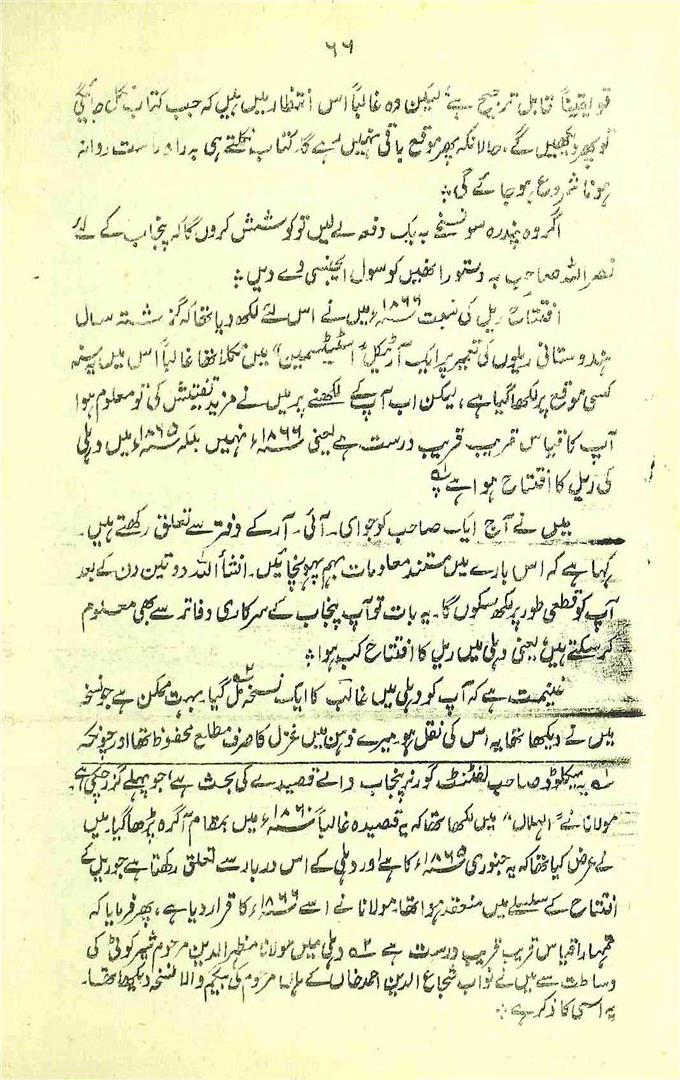 ۶۶
تو یقیناً قابل ترجیح ہے، لیکن وہ غالباً اس انتظار میں ہیں کہ جب کتاب نکل جائیگی
تو پھر دیکھیں گے، حالانکہ پھر موقع باقی نہیں رہے گا۔ کتاب نکلتے ہی براہ راست روانہ
ہونا شروع ہو جائے گی؛
اگر وہ پندرہ سو نسخے بہ یک دفعہ لے لیں تو کوشش کروں گا کہ پنجاب کے لئے
نصر اللہ صاحب بہ دستور انھیں کو سول ایجنسی دے دیں؛
افتتاح ریل کی نسبت ۱۸۶۶ء میں نے اس لئے لکھ دیا تھا کہ گزشتہ سال
ہندوستانی ریلوں کی تعمیر پر ایک آرٹیکل "اسٹیٹسمین" میں نکلا تھا غالباً اس میں یہ سنہ
کسی موقع پر لکھا گیا ہے، لیکن اب آپ کے لکھنے پر میں نے مزید تفتیش کی تو معلوم ہوا
آپ کا قیاس قریب قریب درست ہے یعنی ۱۸۶۶ء نہیں بلکہ ۱۸۶۵ء میں دہلی
کی ریل کا افتتاح ہوا ہے ۱ہ
میں نے آج ایک صاحب کو جو ای۔ آئی۔ آر کے دفتر سے تعلق رکھتے ہیں۔
کہا ہے کہ اس بارے میں مستند معلومات بہم پہونچائیں۔ انشأ اللہ دو تین دن کے بعد
آپ کو قطعی طور پر لکھ سکوں گا۔ یہ بات تو آپ پنجاب کے سرکاری دفاتر سے بھی معلوم
کر سکتے ہیں، یعنی دہلی میں ریل کا افتتاح کب ہوا؛
غنیمت ہے کہ آپ کو دہلی میں غالب کا ایک نسخہ مل گیا۲ہ۔ بہت ممکن ہے جو نسخہ
میں نے دیکھا تھا یہ اس کی نقل ہو۔ میرے ذہن میں غزل کا صرف مطلع محفوظ تھا اور چونکہ
۱ہ یہ میکلوڈ صاحب لفٹنٹ گورنر پنجاب والے قصیدے کی بحث ہے، جو پہلے گزر چکی ہے۔
مولانا نے "الہلال" میں لکھا تھا کہ یہ قصیدہ غالباً ۱۸۶۰ء میں بمقام آگرہ پڑھا گیا۔ میں
نے عرض کیا تھا کہ یہ جنوری ۱۸۶۵ء کا ہے اور دہلی کے اس دربار سے تعلق رکھتا ہے جو ریل کے
افتتاح کے سلسلے میں منعقد ہوا تھا، مولانا نے اسے ۱۸۶۶ء کا قرار دیا ہے، پھر فرمایا کہ
تمہارا قیاس قریب قریب درست ہے ۲ہ دہلی میں مولانا مظہر الدین مرحوم شیر کوٹی کی
وساطت سے میں نے نواب شجاع الدین احمد خاں کے ہاں مرحوم کی بیگم والا نسخہ دیکھا تھا۔
یہ اسی کا ذکر ہے؛